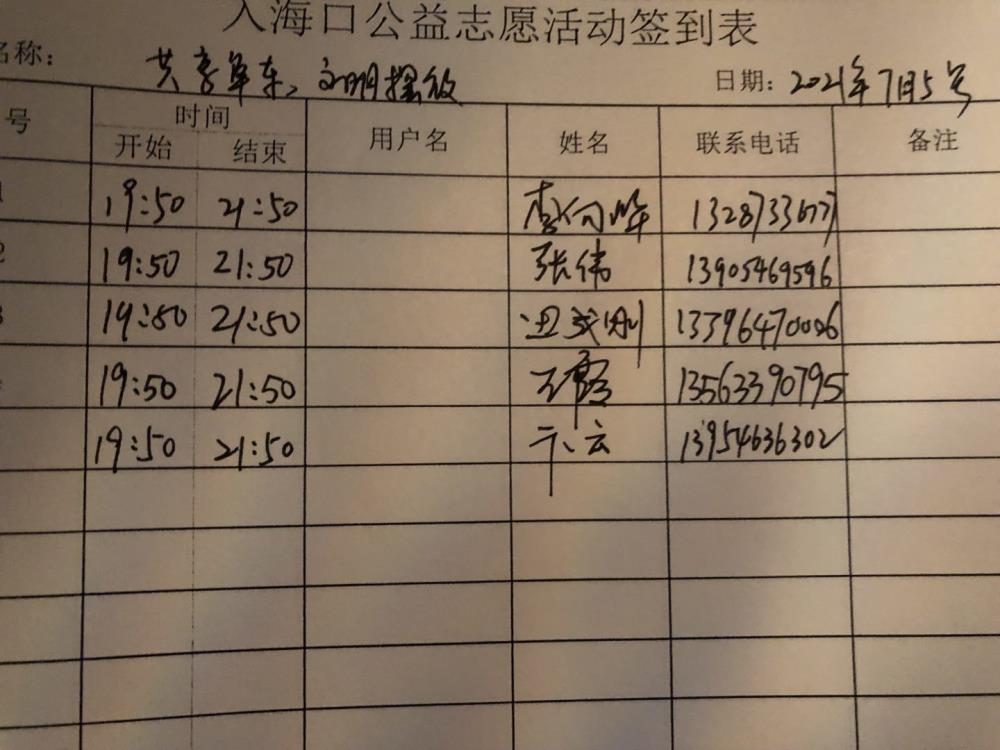 入海口公益志愿活动签到表
名称： 共享单车、文明摆放 日期：2021年7月5号
号 时间 用户名 姓名 联系电话 备注
开始 结束
1 19:50 21:50 李向 13287336777
2 19:50 21:50 张伟 13905469596
3 19:50 21:50 13396470006
19:50 21:50 王霞 13563390795
19:50 21:50 云 13954636302